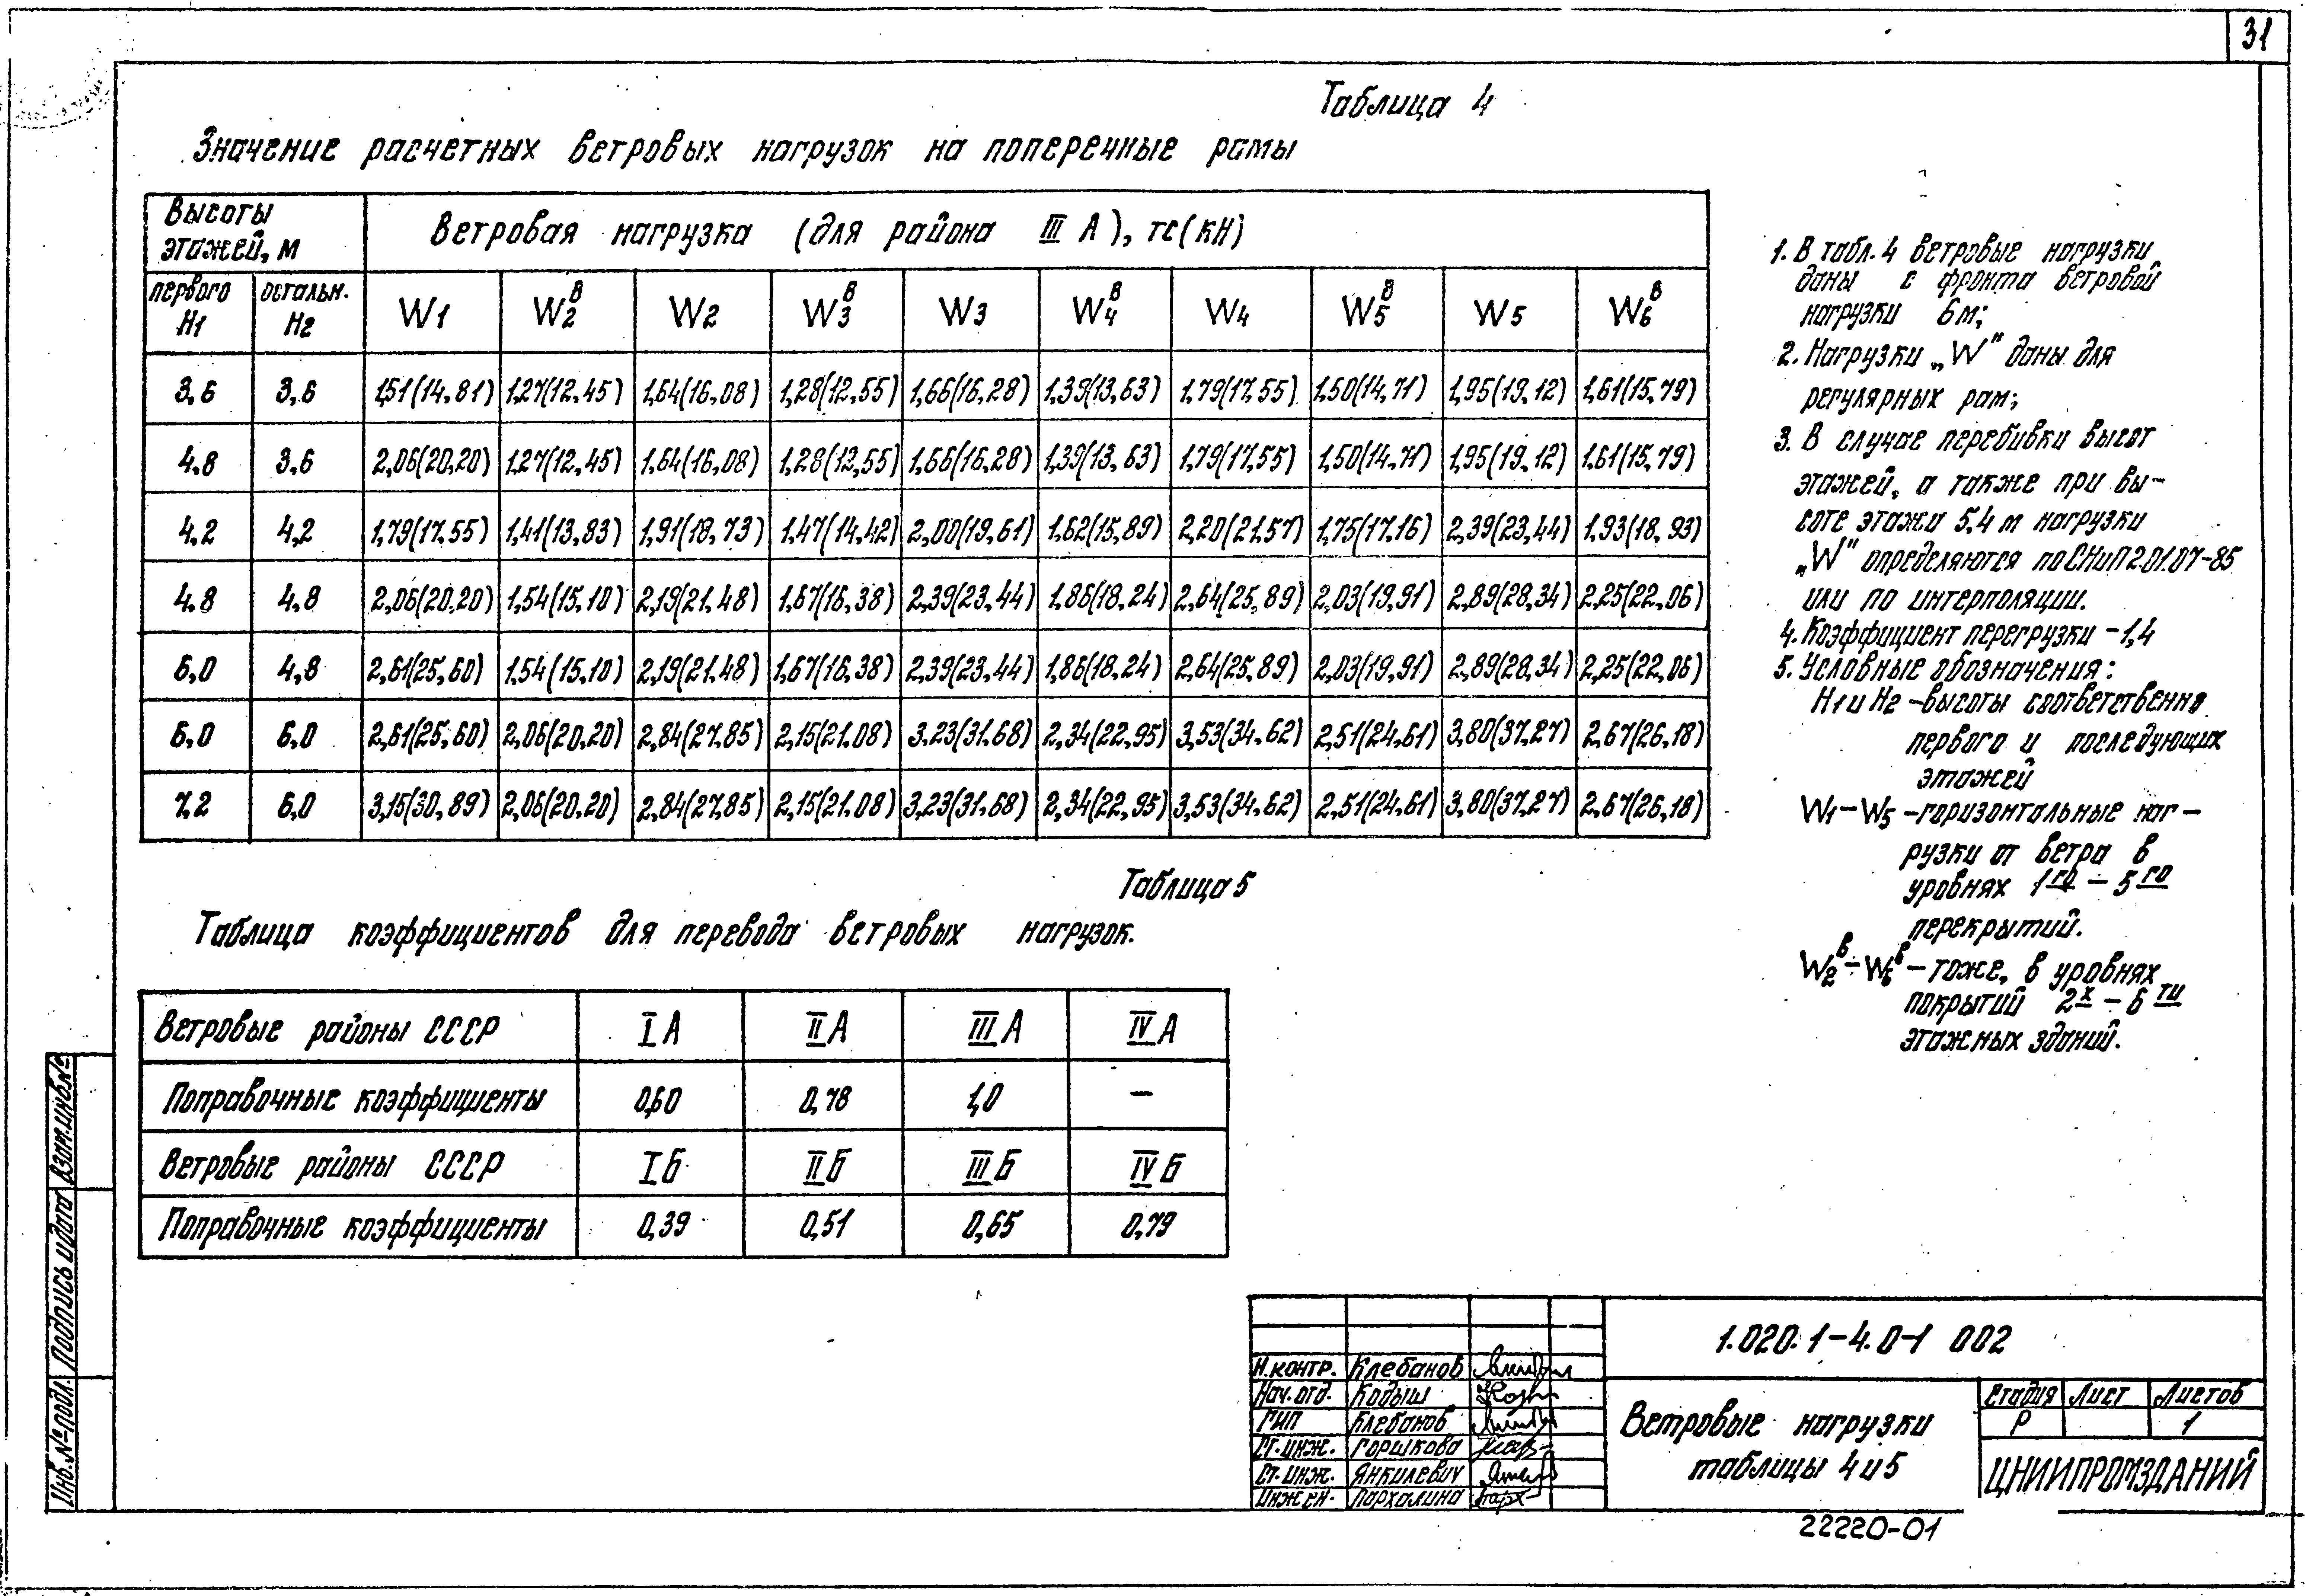 31
Таблица 4
Значение расчетных ветровых нагрузок на поперечные рамы
Высоты этажей, м | Ветровая нагрузка (для района III А), тс(кН)
первого H1 | остальн. H2 | W1 | W2в | W2 | W3в | W3 | W4в | W4 | W5в | W5 | W6в
3,6 | 3,6 | 1,51(14,81) | 1,27(12,45) | 1,64(16,08) | 1,28(12,55) | 1,66(16,28) | 1,39(13,63) | 1,79(17,55) | 1,50(14,71) | 1,95(19,12) | 1,61(15,79)
4,8 | 3,6 | 2,06(20,20) | 1,27(12,45) | 1,64(16,08) | 1,28(12,55) | 1,66(16,28) | 1,39(13,63) | 1,79(17,55) | 1,50(14,71) | 1,95(19,12) | 1,61(15,79)
4,2 | 4,2 | 1,79(17,55) | 1,41(13,83) | 1,91(18,73) | 1,47(14,42) | 2,00(19,61) | 1,62(15,89) | 2,20(21,57) | 1,75(17,16) | 2,39(23,44) | 1,93(18,93)
4,8 | 4,8 | 2,06(20,20) | 1,54(15,10) | 2,19(21,48) | 1,67(16,38) | 2,39(23,44) | 1,86(18,24) | 2,64(25,89) | 2,03(19,91) | 2,89(28,34) | 2,25(22,06)
6,0 | 4,8 | 2,61(25,60) | 1,54(15,10) | 2,19(21,48) | 1,67(16,38) | 2,39(23,44) | 1,86(18,24) | 2,64(25,89) | 2,03(19,91) | 2,89(28,34) | 2,25(22,06)
6,0 | 6,0 | 2,61(25,60) | 2,06(20,20) | 2,84(27,85) | 2,15(21,08) | 3,23(31,68) | 2,34(22,95) | 3,53(34,62) | 2,51(24,61) | 3,80(37,27) | 2,67(26,18)
7,2 | 6,0 | 3,15(30,89) | 2,06(20,20) | 2,84(27,85) | 2,15(21,08) | 3,23(31,68) | 2,34(22,95) | 3,53(34,62) | 2,51(24,61) | 3,80(37,27) | 2,67(26,18)
1. В табл. 4 ветровые нагрузки
даны с фронта ветровой
нагрузки 6м;
2. Нагрузки „W" даны для
регулярных рам;
3. В случае перебивки высот
этажей, а также при вы-
соте этажа 5,4 м нагрузки
„W" определяются по СНиП 2.01.07-85
или по интерполяции.
4. Коэффициент перегрузки - 1,4
5. Условные обозначения:
H1 и H2 - высоты соответственно
первого и последующих
этажей
W1-W5 - горизонтальные наг-
рузки от ветра в
уровнях 1го - 5го
перекрытий.
W2в-W6в - тоже, в уровнях
покрытий 2х - 6ти
этажных зданий.
Таблица 5
Таблица коэффициентов для перевода ветровых нагрузок.
Ветровые районы СССР | I А | II А | III А | IV А
Поправочные коэффициенты | 0,60 | 0,78 | 1,0 | —
Ветровые районы СССР | I Б | II Б | III Б | IV Б
Поправочные коэффициенты | 0,39 | 0,51 | 0,65 | 0,79
Инв.№подл. Подпись и дата Взам.инв.№
Н.контр. Клебанов
Нач.отд. Кодыш
ГИП Клебанов
Ст.инж. Горшкова
Ст.инж. Янкилевич
Инжен. Пархалина
1.020.1-4.0-1 002
Ветровые нагрузки
таблицы 4 и 5
Стадия Лист Листов
Р 1
ЦНИИПРОМЗДАНИЙ
22220-01